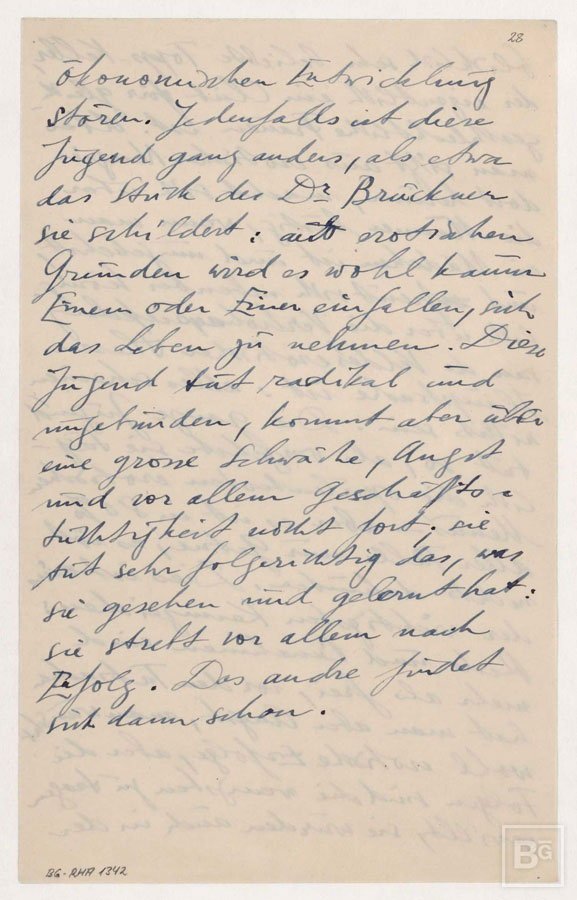 28
ökonomischen Entwicklung
stören. Jedenfalls ist diese
Jugend ganz anders, als etwa
das Stück des Dr Brückner
sie schildert: aus erotischen
Gründen wird es wohl kaum
Einem oder Einer einfallen, sich
das Leben zu nehmen. Diese
Jugend tut radikal und
ungebunden, kommt aber über
eine grosse Schwäche, Angst
und vor allem Geschäfts-
tüchtigkeit nicht fort; sie
tut sehr folgerichtig das, was
sie gesehen und gelernt hat:
sie strebt vor allem nach
Erfolg. Das andre findet
sich dann schon.
BG-RHA 1342
BG